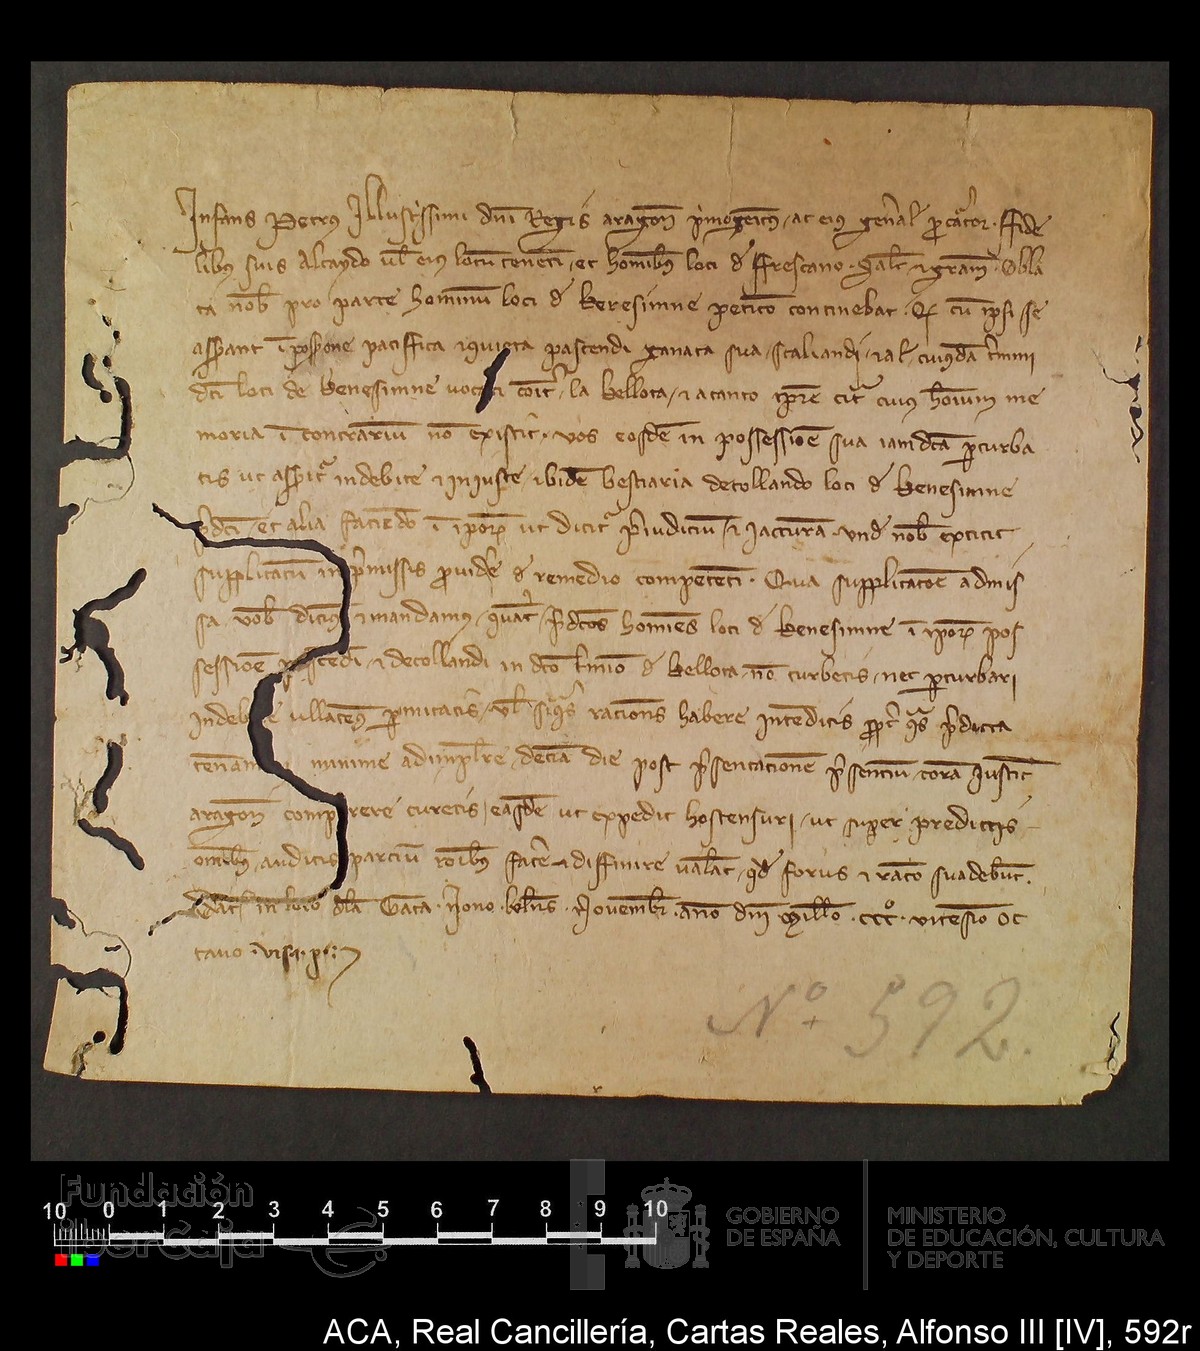 Infans Petrus Illustrissimi dni Regis aragon pmogeitus ac eius genal pcator. ffide
libus suis Alcaydo vel eius locuteneti et homibus loci de ffrescano. Salt et gram. Obla
ta nob pro parte hominum loci de Benesimne peticio continebat. Qd cu ipsi se
asserant i possone paciffica et quieta pascendi ganata sua scaliandi et al cuiusda tmini
dci loci de Benessimne vocati coit la Bellota et a tanto tpre cit cuius hoium me
moria i contrarium no existit. vos eosde in possessioe sua iam dca pturba
tis ut asserit indebite et injuste ibide bestiaria detollando loci de Benesimne
pdci et alia faciedo i ipor ut dicit piudicium et jactura. Unde nob extitit
supplicatu in pmissis pvidere de remedio competeti. Qua supplicacoe admis
sa vob dicimus et mandamus quat pdcos homies loci de Benesimne i ipor pos
sessioe pascedi et decollandi in dco tmino de Bellota no turbetis nec pturbari
indebite ullatenus pmittatis vel si quas racions habere inteditis ppt quas pdicta
minime adimplere decia die post psentacione psentium cora Justic
aragon comparere curetis easde ut expedit hostensuri ut super predictis
omibus auditis parcium roibus facere et diffinire valeat qd forus et raco suadebut.
Dat in loco dla Gata. Nono. klns. Novembr. ano dni Millo. ccco. vicesimo oc
tavo. visa. p.
No 592.
Fundación
iberCaja
10 0 1 2 3 4 5 6 7 8 9 10
GOBIERNO
DE ESPAÑA
MINISTERIO
DE EDUCACIÓN, CULTURA
Y DEPORTE
ACA, Real Cancillería, Cartas Reales, Alfonso III [IV], 592r